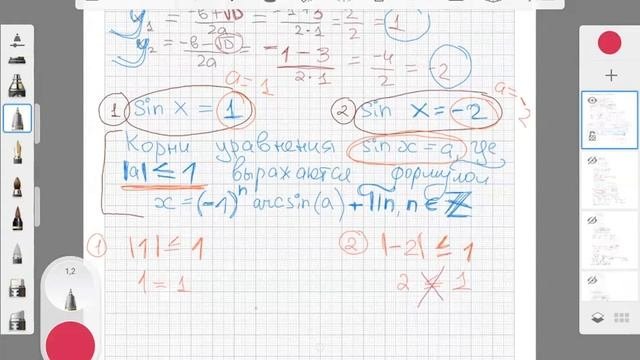 y₁ = -b+√D / 2a = -1+3 / 2·1 = 2/2 = 1
y₂ = -b-√D / 2a = -1-3 / 2·1 = -4/2 = -2
a=1
a=-2
① Sin x = 1
② Sin x = -2
Корни уравнения sin x = a, где
|a| ≤ 1 выражаются формулой
x = (-1)ⁿ arcsin(a) + πn, n ∈ Z
① |1| ≤ 1
② |-2| ≤ 1
1 = 1
2 ≤ 1
1,2